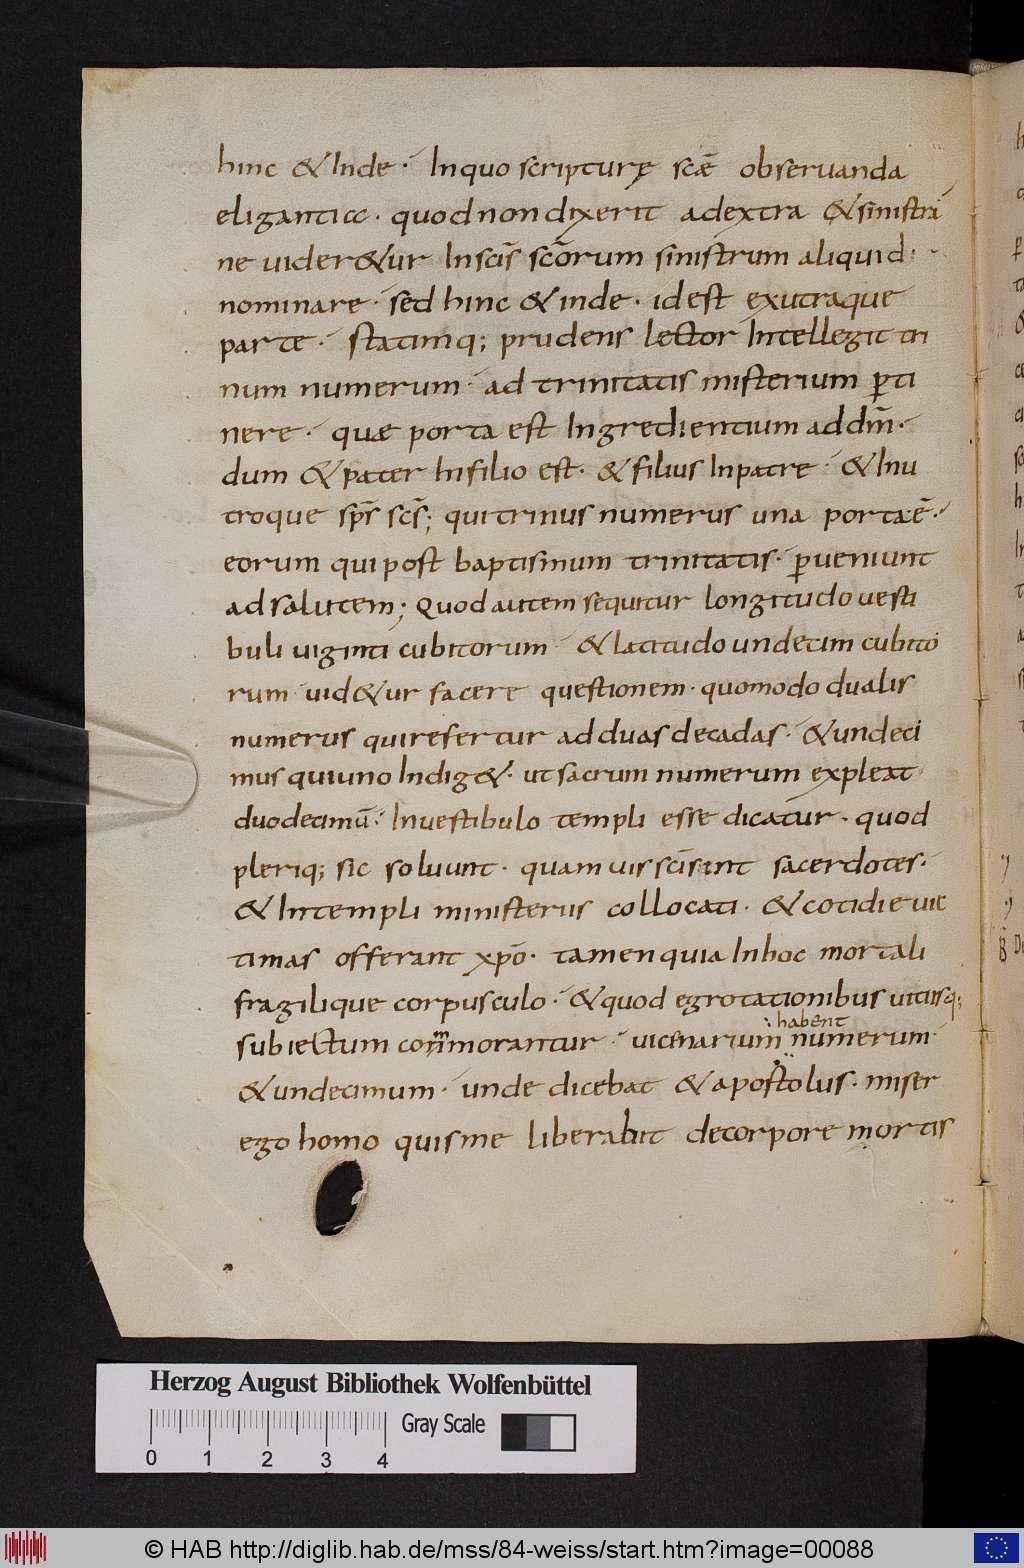 hinc & Inde · In quo scripturę scǣ observanda
eligantia · quod non dixerit adextra & sinistra
ne uider&ur In scīs scōrum sinistrum aliquid ·
nominare · sed hinc & inde · id est exutraque
parte · statimq; prudens lector Intellegit tri
num numerum · ad trinitatis misterium ꝑti
nere · quæ porta est Ingredientium ad dm̄ ·
dum & pater In filio est · & filius In patre · & In u
troque sp̄s scs̄; qui trinus numerus una porta ē ·
eorum qui post baptismum trinitatis · ꝑveniunt
ad salutem; Quod autem sequitur longitudo vesti
buli viginti cubitorum · & latitudo undecim cubito
rum · uid&ur facere questionem · quomodo dualis
numerus qui refertur ad duas decadas · & undeci
mus qui uno Indig& · ut sacrum numerum expleat
duodecimū · In uestibulo templi esse dicatur · quod
pleriq; sic soluunt · quam vis scī sint sacerdotes ·
& In templi ministeriis collocati · & cotidie uic
timas offerant xp̄o · tamen quia In hoc mortali
fragilique corpusculo · & quod egrotationibus uitiisq;
habent
subiectum commorantur · vicenarium numerum ·
& undecimum · unde dicebat & apostolus · miser
ego homo quis me liberabit de corpore mortis
Herzog August Bibliothek Wolfenbüttel
Gray Scale
0 1 2 3 4
© HAB http://diglib.hab.de/mss/84-weiss/start.htm?image=00088